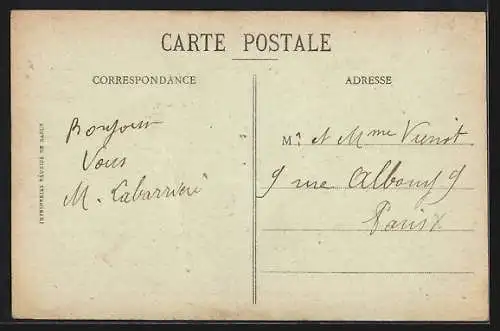 CARTE POSTALE
CORRESPONDANCE
ADRESSE
Bonjour
Vous
M. Labarrière
M. et Mme Vienot
9 rue Albouy 9
Paris X
IMPRIMERIES RÉUNIES DE NANCY